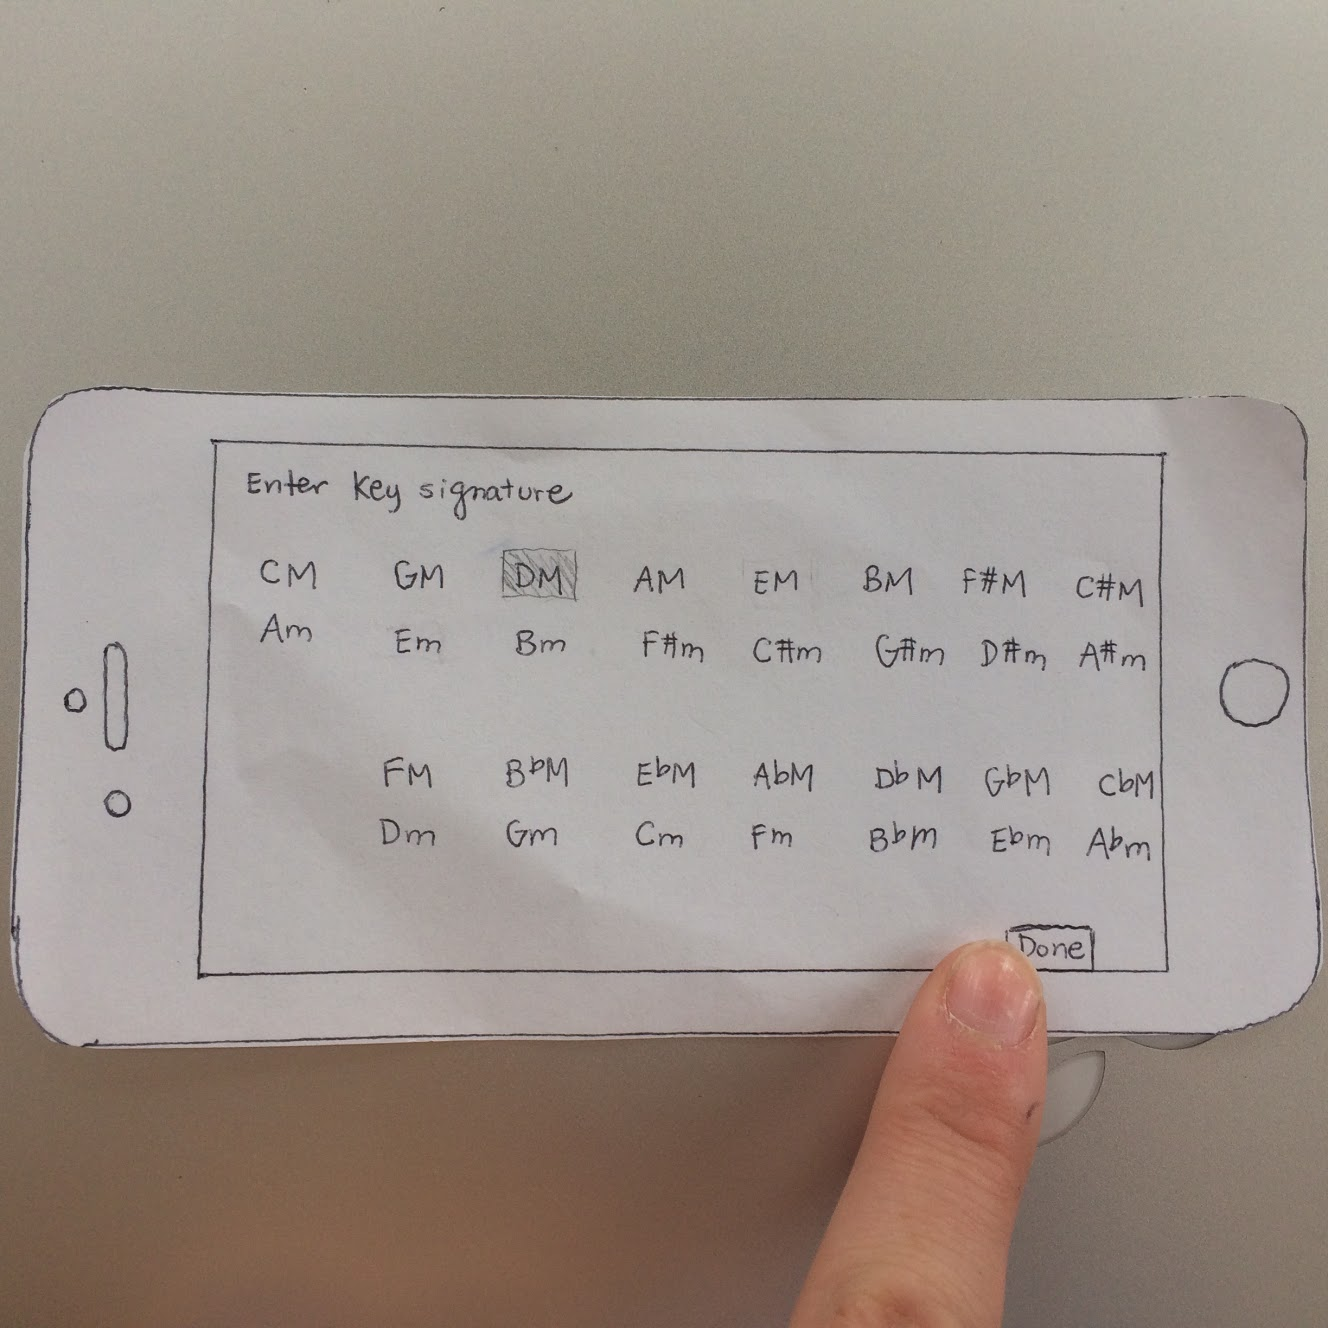 Enter key signature
CM GM DM AM EM BM F#M C#M
Am Em Bm F#m C#m G#m D#m A#m
FM BbM EbM AbM DbM GbM CbM
Dm Gm Cm Fm Bbm Ebm Abm
Done